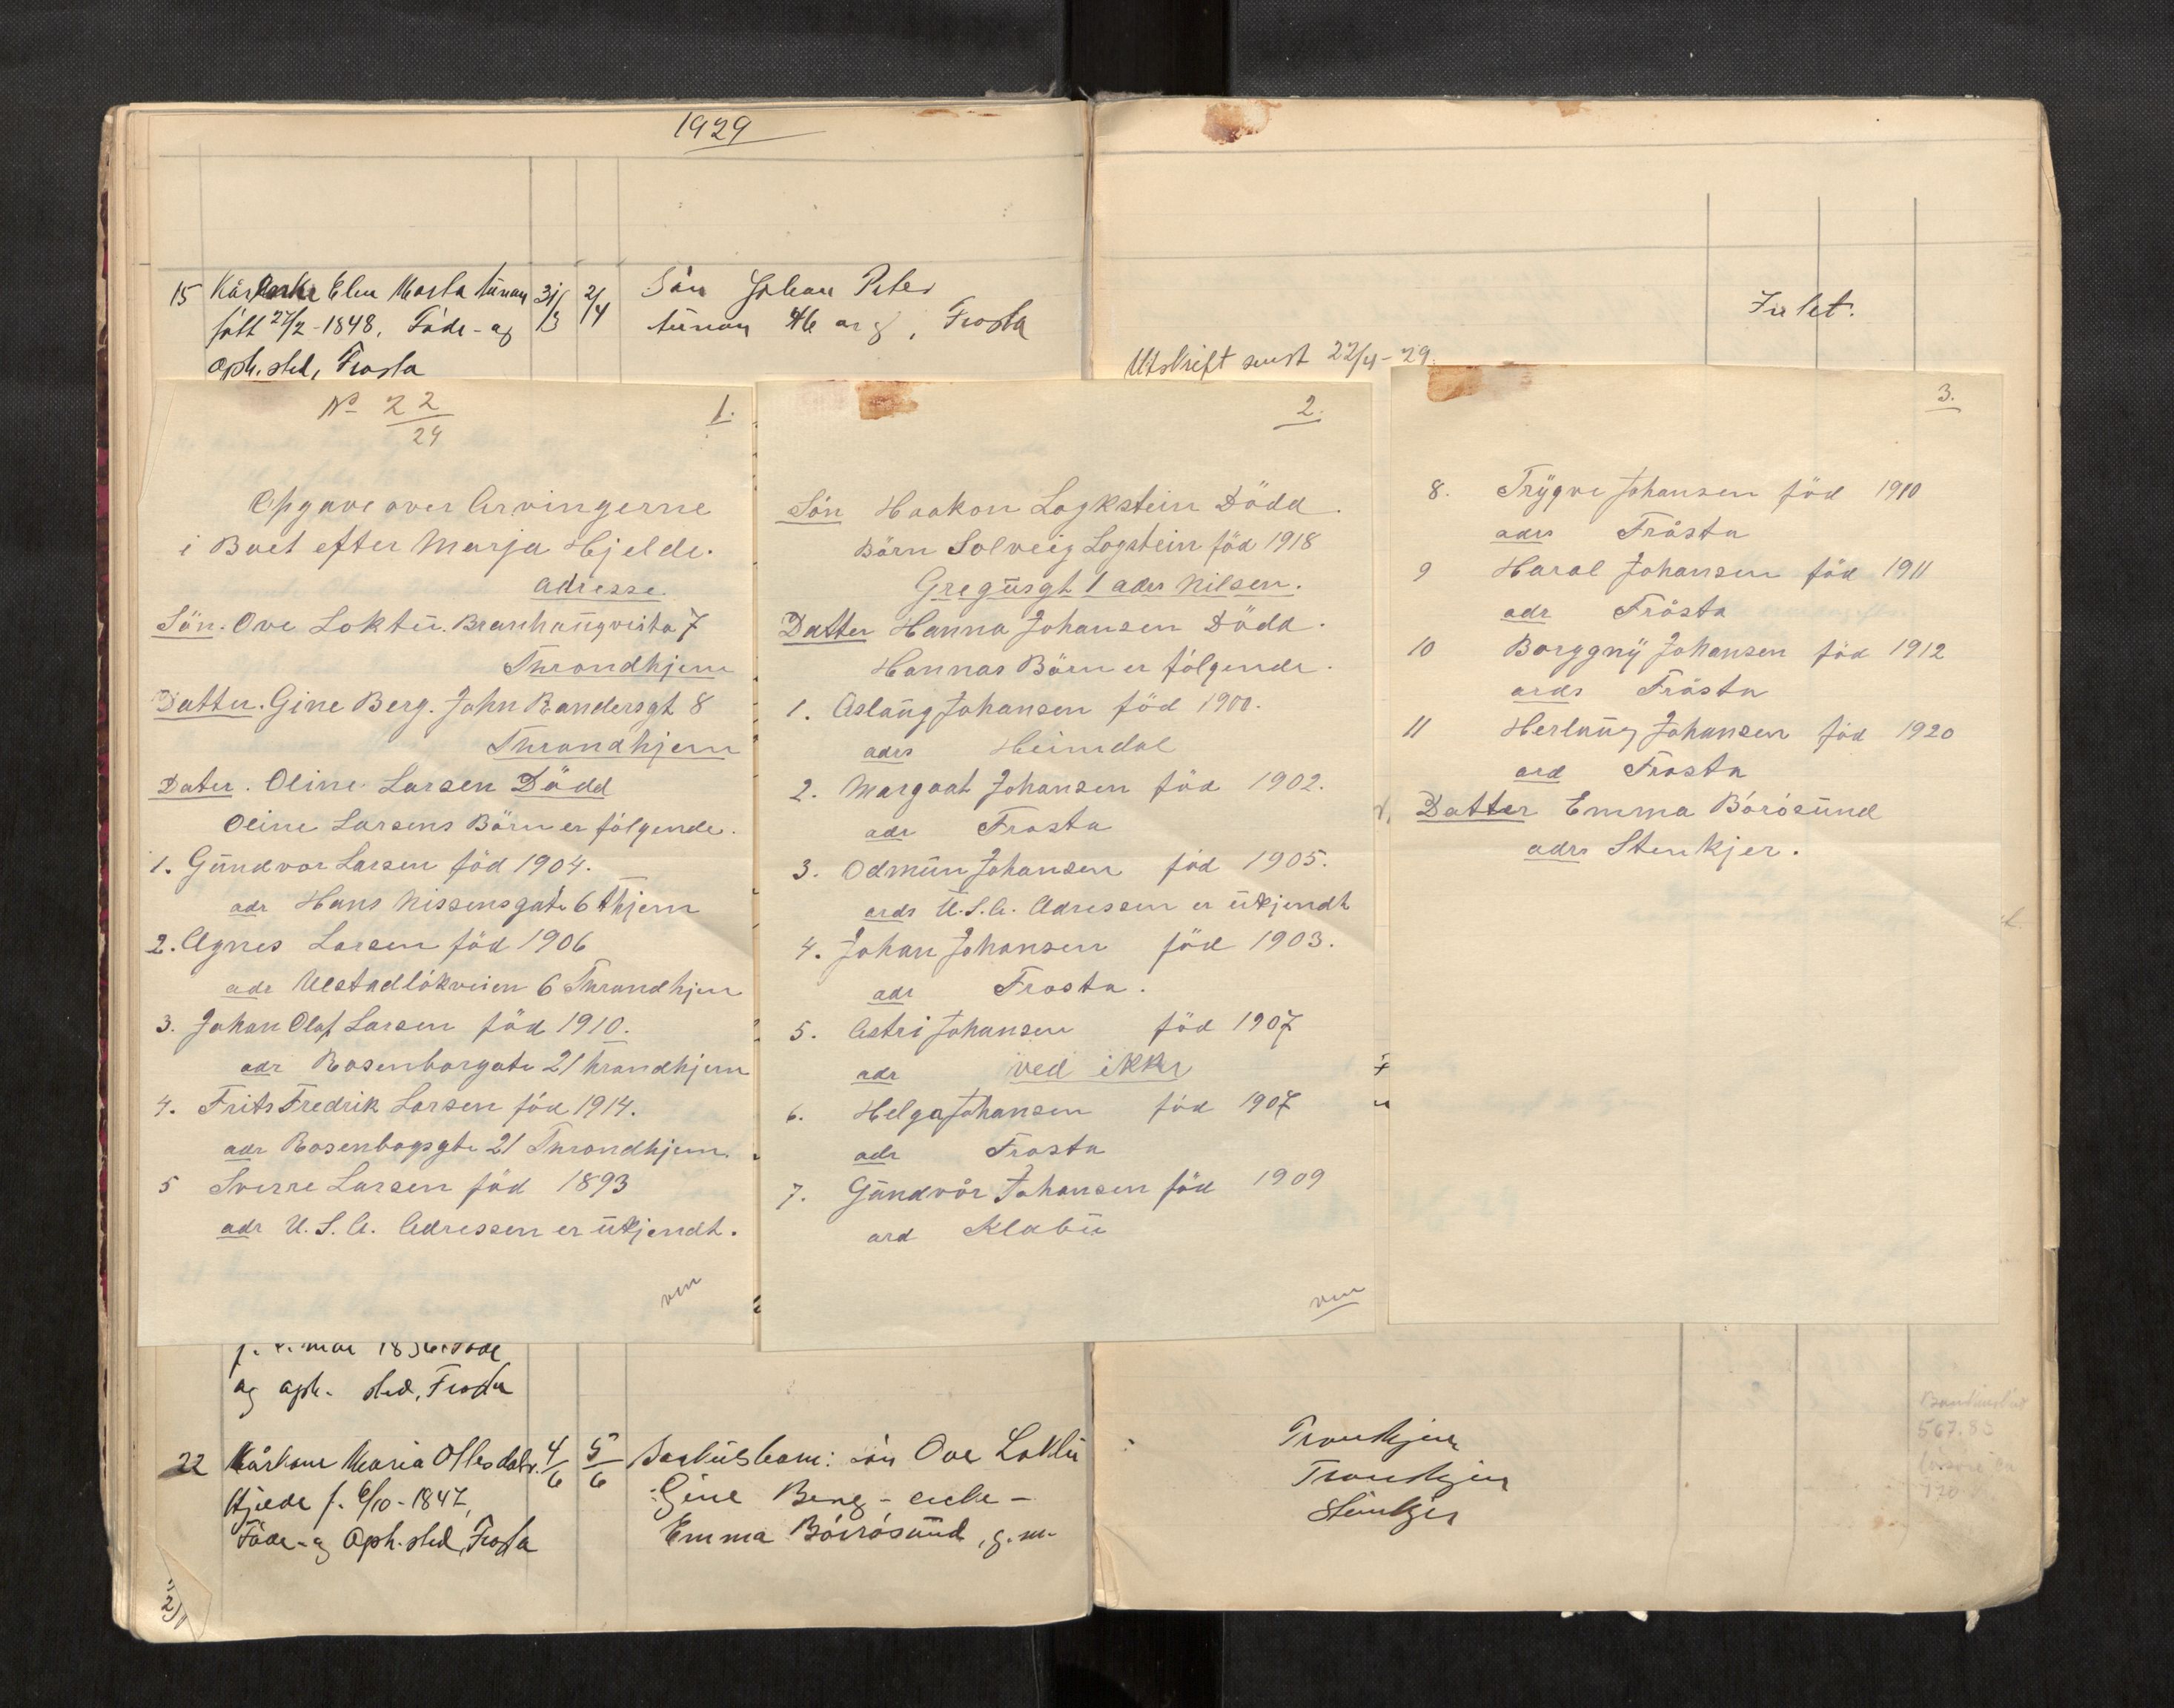 1929
15 Kårkone Elen Marta
født 27/2-1848. Föde- og
Oph. sted, Frosta
31/3
2/4
Sön Johan Peter
46 år g, Frosta
Intet.
Utskrift sendt 22/4-29.
No 22/29
1.
Opgave over Arvingerne
i Boet efter Marja Hjelde.
adresse
Sön. Ove Loktu. 7
Throndhjem
Datter. Gine Berg. John Randersgt 8
Throndhjem
Dater. Oline Larsen Dödd
Oline Larsens Börn er følgende.
1. Gundvor Larsen föd 1904.
adr Hans Nissensgate 6 Thjem
2. Agnes Larsen föd 1906
adr 6 Throndhjem
3. Johan Olaf Larsen föd 1910.
adr Rosenborgate 21 Trondhjem
4. Frits Fredrik Larsen föd 1914.
adr Rosenbogsgte 21 Throndhjem.
5 Sverre Larsen föd 1893
adr U.S.A. Adressen er ukjendt.
ven
2.
Sön Haakon Logkstein Dödd.
Börn Solveig Logstein föd 1918
Gregusgt 1 adrs Nilsen.
Datter Hanna Johansen Dödd.
Hannas Börn er følgende.
1. Aslaug Johansen föd 1900.
adrs Heimdal
2. Margaat Johansen föd 1902.
adr Frosta
3. Odmun Johansen föd 1905.
ards U.S.A. Adressen er ukjendt
4. Johan Johansen föd 1903.
adr Frosta.
5. Astri Johansen föd 1907
adr ved ikke
6. Helga Johansen föd 1907
adr Frosta
7. Gundvår Johansen föd 1909
ard Klabu
ven
3.
8. Trygve Johansen föd 1910
adrs Frösta
9 Haral Johansen föd 1911
adr Frösta
10 Borggny Johansen föd 1912
ards Frösta
11 Herlaug Johansen föd 1920
ard Frosta
Datter Emma Börösund
adrs Stenkjer.
og oph. sted, Frosta
22 Kårkone Maria Ollesdatr.
Hjelde f. 6/10-1847,
Föde- og Oph. sted, Frosta
4/6
5/6
Særkulsbarn: sön Ove Loktu
Gine Berg - enke -
Emma Böirösund, g.m.
Trondhjem
Trondhjem
Stenkjer